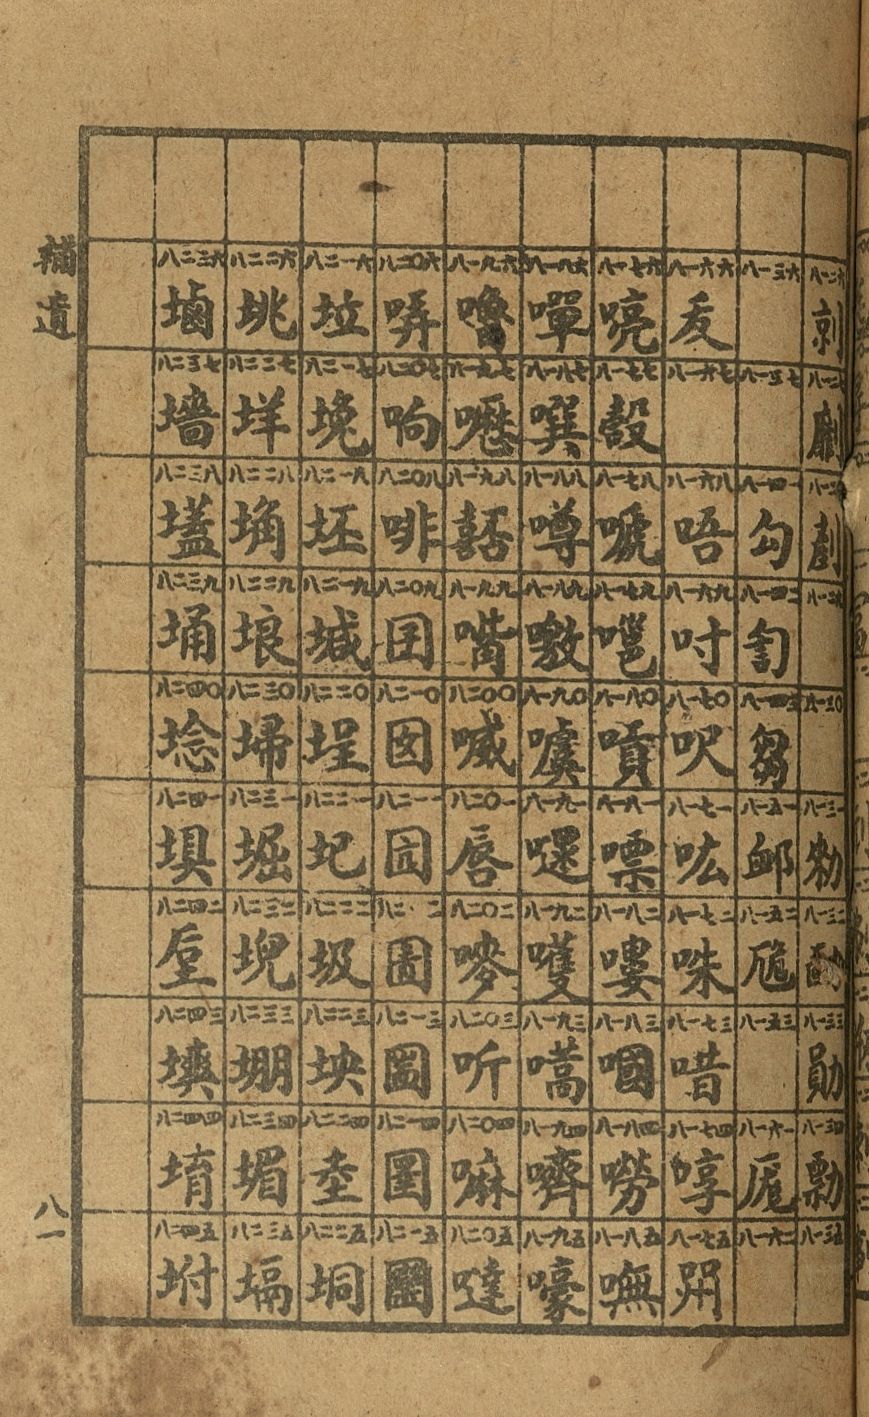 補遺
八一
八一二六 八一二七 八一二八 八一二九 八一三〇 八一三一 勑 八一三二 八一三三 勛 八一三四 勡 八一三五
八一三六 八一三七 八一四一 勾 八一四二 匐 八一四三 芻 八一五一 卹 八一五二 卼 八一五三 八一六一 厖 八一六二
八一六六 叐 八一六七 八一六八 唔 八一六九 吋 八一七〇 呎 八一七一 吰 八一七二 咮 八一七三 唶 八一七四 啍 八一七五 喌
八一七六 喨 八一七七 嗀 八一七八 嗁 八一七九 嗈 八一八〇 嗊 八一八一 嘌 八一八二 嘍 八一八三 嘓 八一八四 嘮 八一八五 嘸
八一八六 嘽 八一八七 噀 八一八八 噂 八一八九 噭 八一九〇 噳 八一九一 噮 八一九二 嚄 八一九三 嚆 八一九四 嚌 八一九五 嚎
八一九六 嚕 八一九七 嚦 八一九八 嚞 八一九九 嘴 八二〇〇 喊 八二〇一 唇 八二〇二 嘜 八二〇三 听 八二〇四 嘛 八二〇五 噠
八二〇六 哢 八二〇七 响 八二〇八 啡 八二〇九 囝 八二一〇 囡 八二一一 囸 八二一二 圊 八二一三 圌 八二一四 圛 八二一五
八二一六 垃 八二一七 堍 八二一八 坯 八二一九 堿 八二二〇 埕 八二二一 圮 八二二二 圾 八二二三 坱 八二二四 坴 八二二五 垌
八二二六 垗 八二二七 垟 八二二八 埆 八二二九 埌 八二三〇 埽 八二三一 堀 八二三二 堄 八二三三 堋 八二三四 堳 八二三五 塥
八二三六 塷 八二三七 墻 八二三八 壒 八二三九 埇 八二四〇 埝 八二四一 埧 八二四二 垕 八二四三 塽 八二四四 堉 八二四五 坿